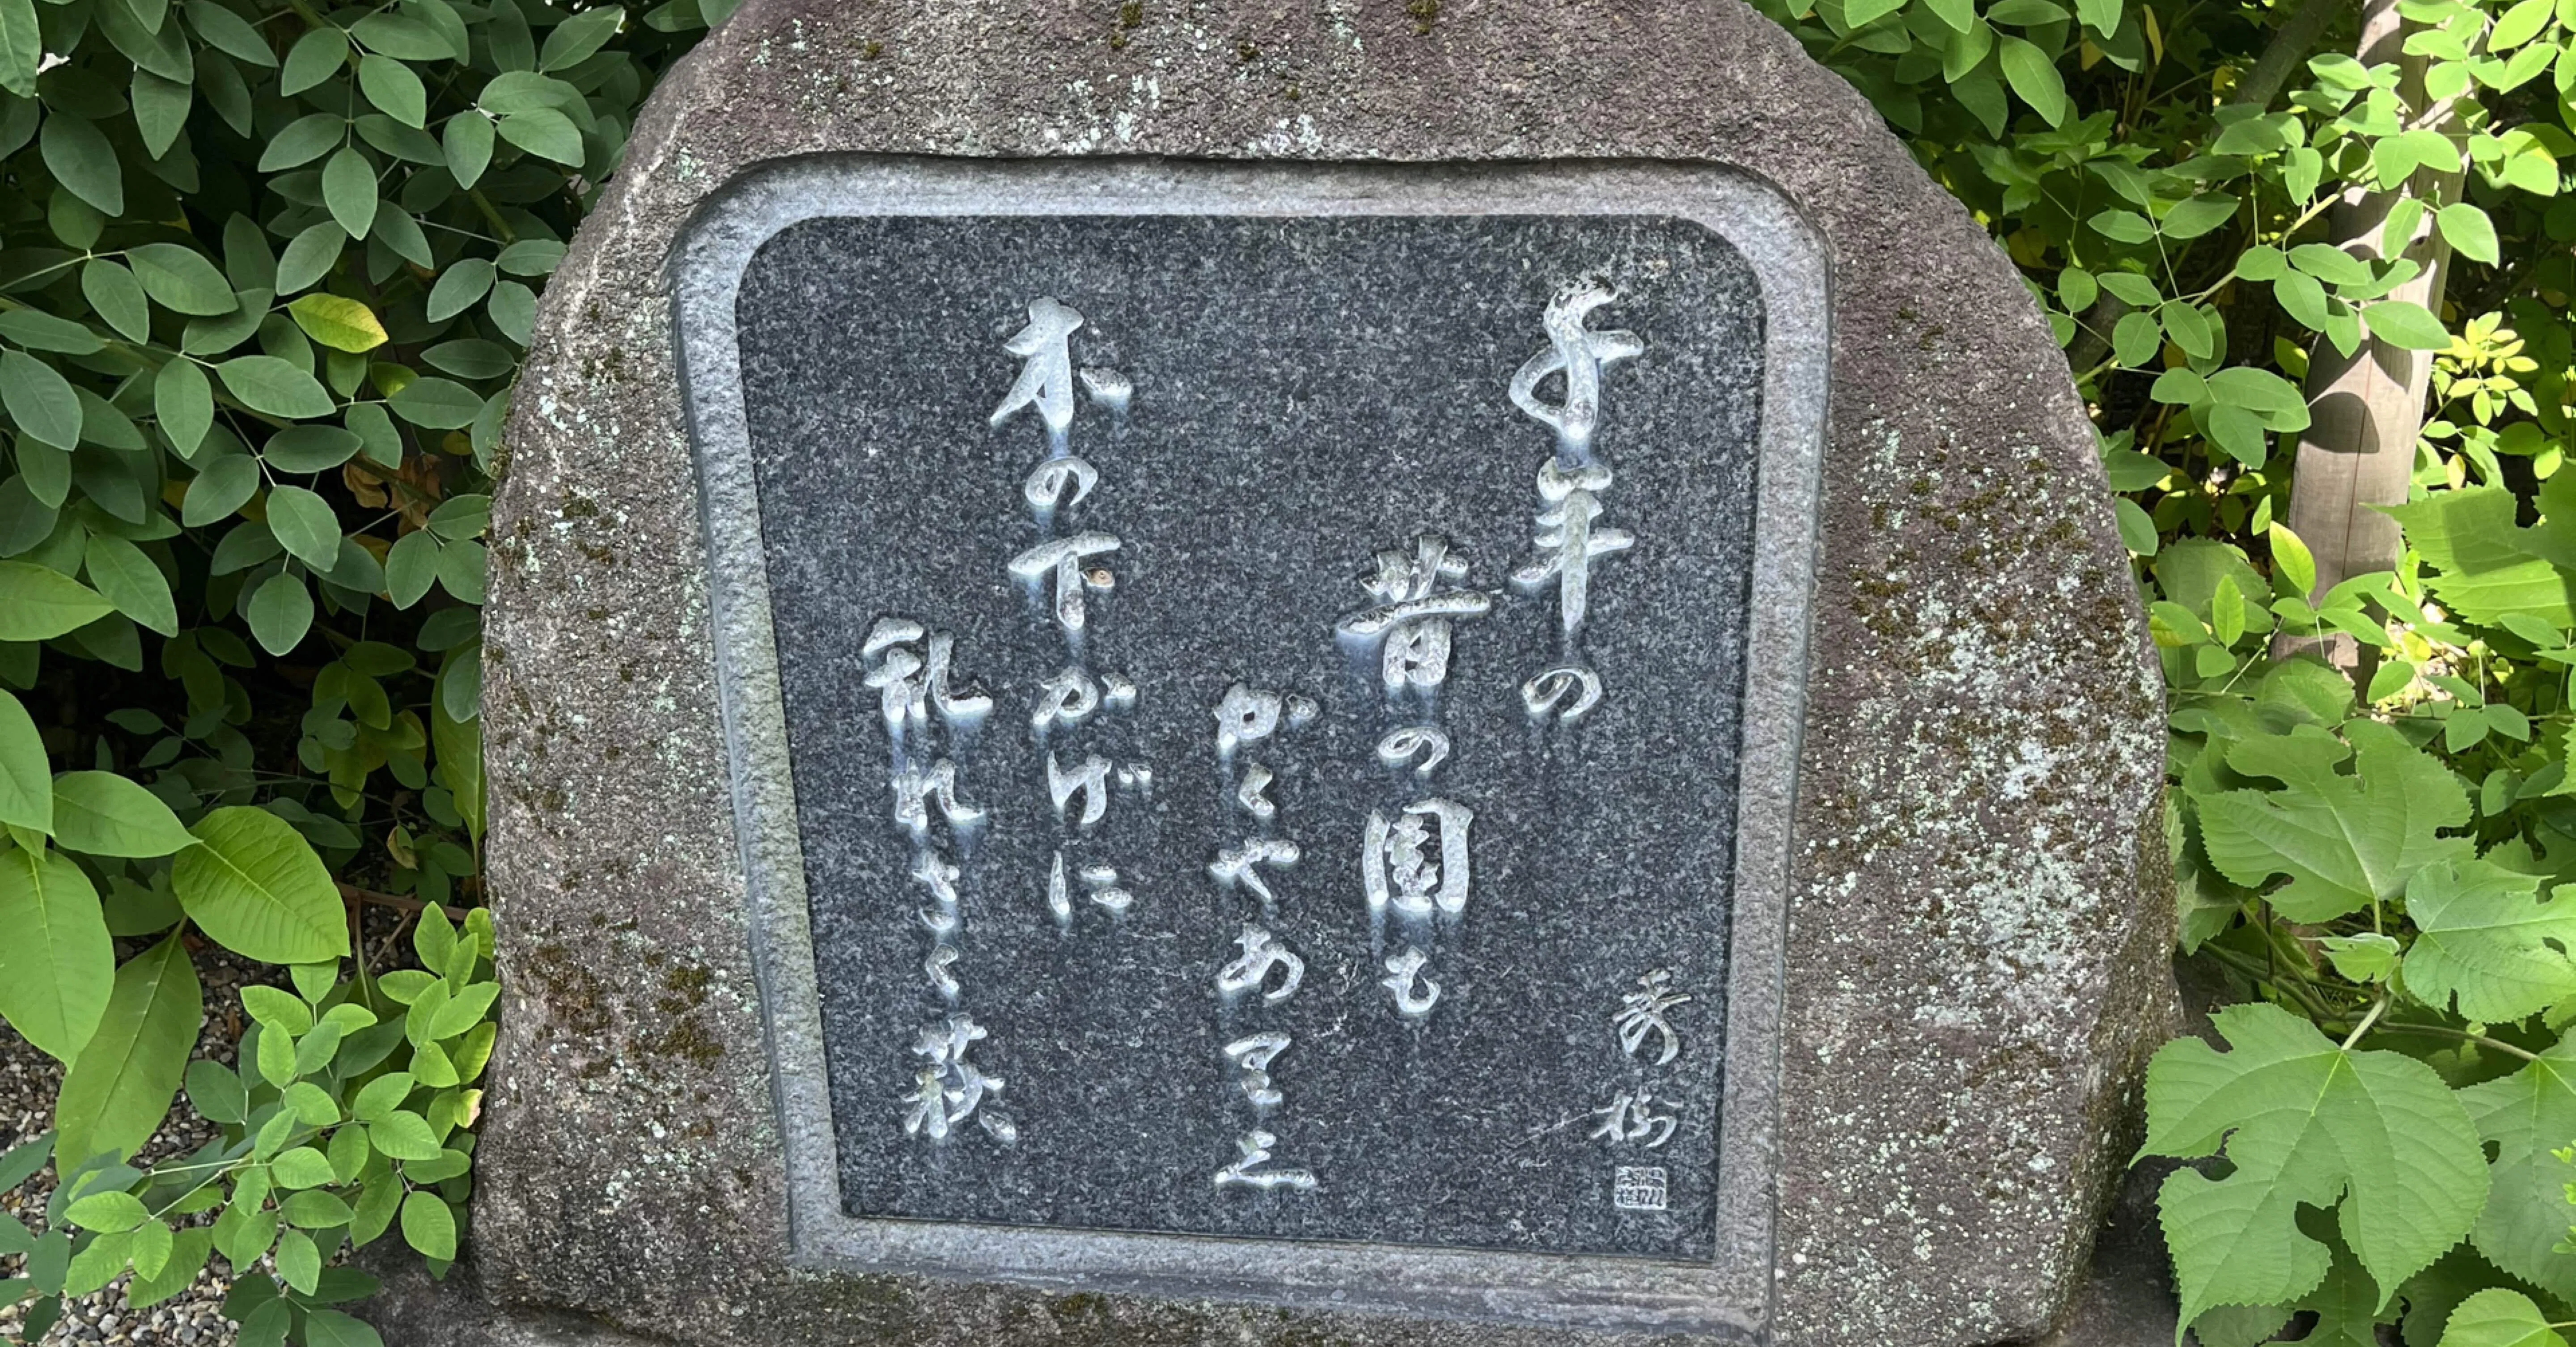 千年の
昔の園も
かくやありし
木の下かげに
乱れさく萩
秀樹